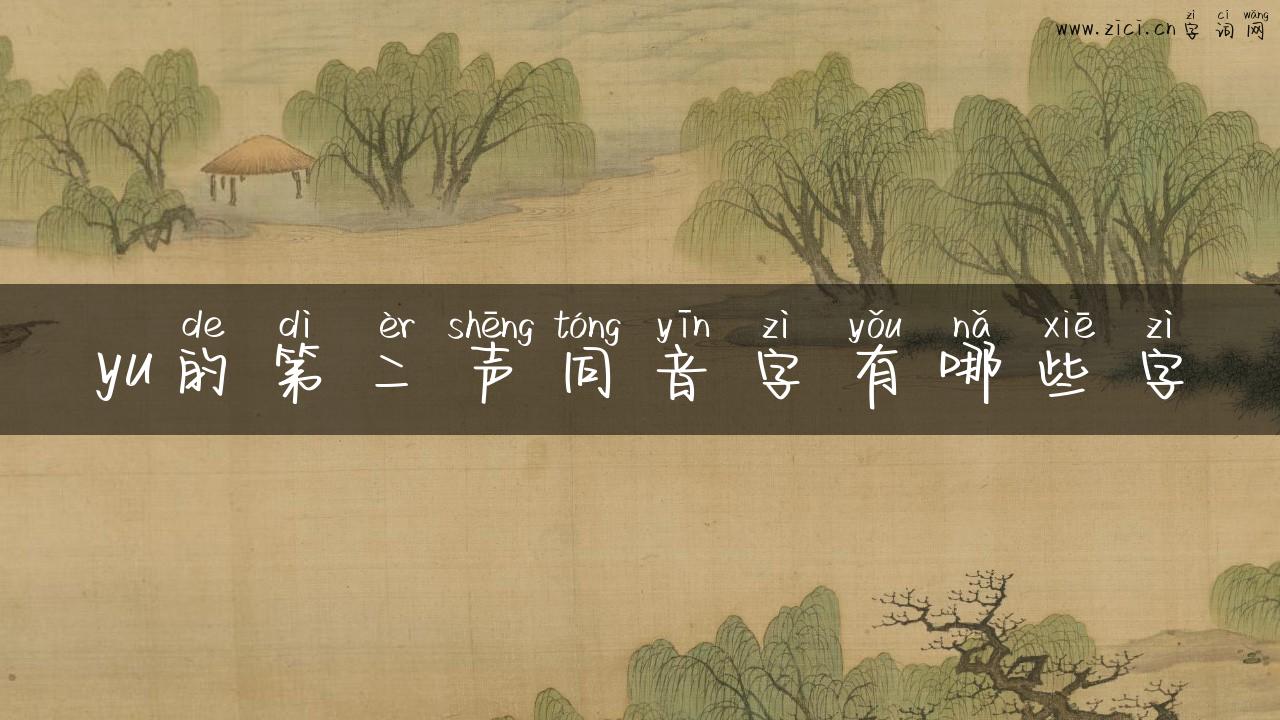 zì cí wǎng
www.zici.cn字词网
de dì èr shēng tóng yīn zì yǒu nǎ xiē zì
yu的第二声同音字有哪些字